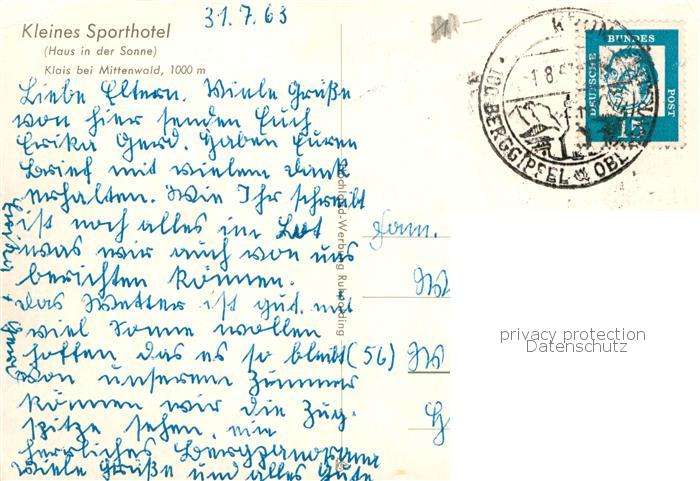 31.7.63
Kleines Sporthotel
(Haus in der Sonne)
Klais bei Mittenwald, 1000 m
Liebe Eltern. Viele Grüße
von hier senden Euch
Erika Gerd. Haben Euren
Brief mit vielem dank
erhalten. Wie Ihr schreibt
ist noch alles im Lot
was wir auch von uns
berichten können.
das Wetter ist gut. mit
viel Sonne wollen
hoffen das es so bleibt
von unserem Zimmer
können wir die Zug-
spitze sehen. ein
herrliches Bergpanorama
Viele Grüße und alles Gute
Gerd
Fam.
W
(56) W
DEUTSCHE
BUNDES
POST
15
100 BERGGIPFEL
privacy protection
Datenschutz